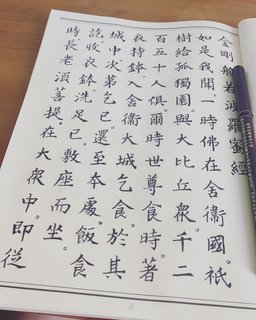 金剛般若波羅蜜經
如是我聞。一時佛在舍衛國。祇
樹給孤獨園。與大比丘眾。千二
百五十人俱。爾時世尊食時。著
衣持鉢。入舍衛大城乞食。於其
城中次第乞已。還至本處。飯食
訖。收衣鉢。洗足已。敷座而坐。
時長老須菩提。在大眾中。即從
3